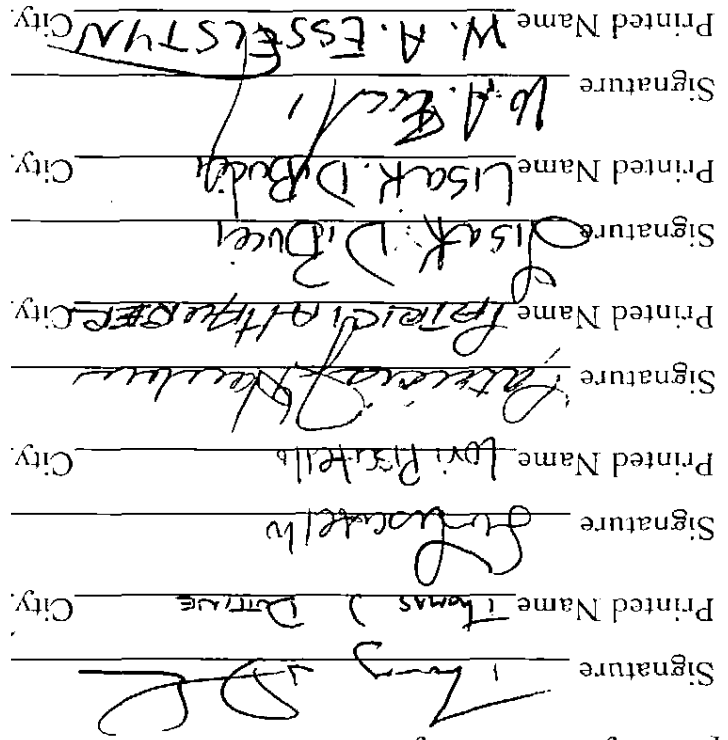 Signature
Printed Name Thomas J Dottine City
Signature Lori Piscitello
Printed Name Lori Piscitello City
Signature Patricia
Printed Name PATRICIA City
Signature Lisa K. DiBucci
Printed Name Lisa K. DiBucci City
Signature W.A.
Printed Name W. A. ESSELSTYN City